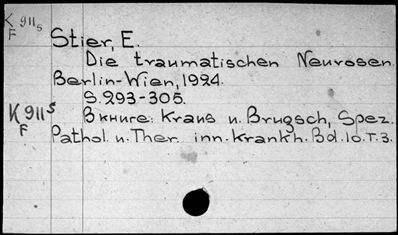 K 911s
F
Stier, E.
Die traumatischen Neurosen.
Berlin-Wien, 1924.
S. 293-305.
K 911s
F
В книге: Kraus u. Brugsch, Spez.
Pathol. u. Ther. inn. Krankh. Bd. 10. T. 3.